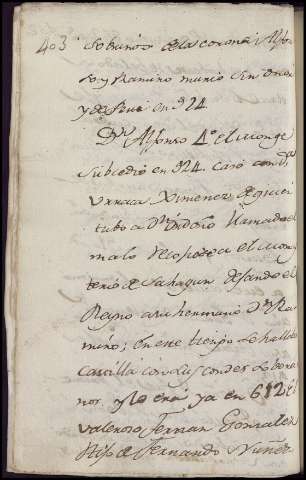 403 sobrinos de la corona Alfon
so y Ramiro murio sin
y en 924.
Dn Alfonso 4º el monge
subcedio en 924. casó con Dª
Urraca Ximenez de quien
tubo a Dn Ordoño llamado el
malo el mon
terio de Sahagun dejando el
Reyno a su hermano Dn Ra
miro; en este tiempo se hallaba
Castilla con los condes sobera
nos. y lo era ya en 612 el
valeroso Fernan Gonzalez
Hijo de Fernando Nuñez